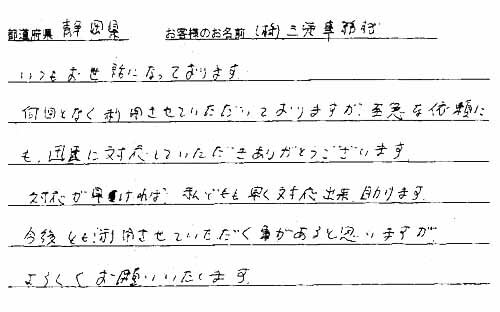 都道府県 静岡県 お客様のお名前 (株)三滝事務所
いつもお世話になっております
何回となく利用させていただいておりますが、至急な依頼に
も、迅速に対応していただきありがとうございます
対応が早ければ、私どもも早く対応出来助かります
今後とも利用させていただく事があると思いますが
よろしくお願いいたします